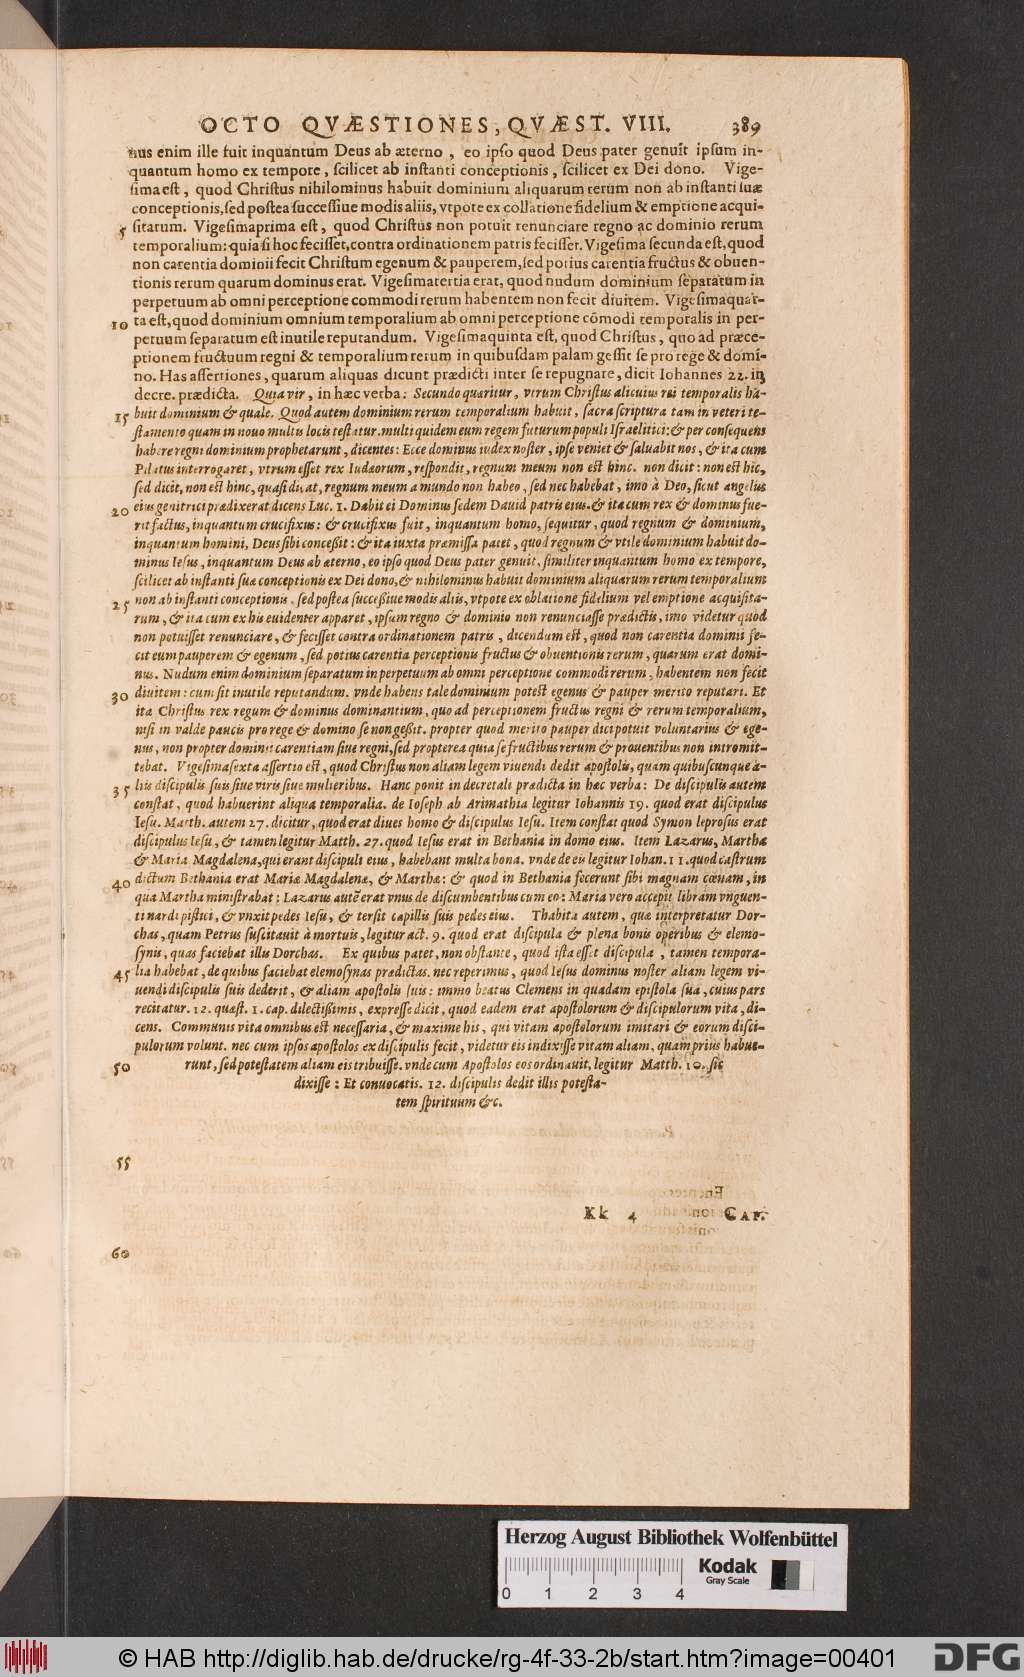 OCTO QVÆSTIONES, QVÆST. VIII. 389
nus enim ille fuit inquantum Deus ab æterno, eo ipso quod Deus pater genuit ipsum in-
quantum homo ex tempore, scilicet ab instanti conceptionis, scilicet ex Dei dono. Vige-
sima est, quod Christus nihilominus habuit dominium aliquarum rerum non ab instanti suæ
conceptionis, sed postea successiue modis aliis, vtpote ex collatione fidelium & emptione acqui-
5 sitarum. Vigesimaprima est, quod Christus non potuit renunciare regno ac dominio rerum
temporalium: quia si hoc fecisset, contra ordinationem patris fecisset. Vigesima secunda est, quod
non carentia dominii fecit Christum egenum & pauperem, sed potius carentia fructus & obuen-
tionis rerum quarum dominus erat. Vigesimatertia erat, quod nudum dominium separatum in
perpetuum ab omni perceptione commodi rerum habentem non fecit diuitem. Vigesimaquar-
10 ta est, quod dominium omnium temporalium ab omni perceptione cōmodi temporalis in per-
petuum separatum est inutile reputandum. Vigesimaquinta est, quod Christus, quo ad præce-
ptionem fructuum regni & temporalium rerum in quibusdam palam gessit se pro rege & domi-
no. Has assertiones, quarum aliquas dicunt prædicti inter se repugnare, dicit Iohannes 22. in
decre. prædicta. Quia vir, in hæc verba: Secundo quaritur, vtrum Christus alicuius rei temporalis ha-
15 buit dominium & quale. Quod autem dominium rerum temporalium habuit, sacra scriptura tam in veteri te-
stamento quam in nouo multis locis testatur. multi quidem eum regem futurum populi Israelitici: & per consequens
habere regni dominium prophetarunt, dicentes: Ecce dominus iudex noster, ipse veniet & saluabit nos, & ita cum
Pilatus interrogaret, vtrum esset rex Iudæorum, respondit, regnum meum non est hinc. non dicit: non est hic,
sed dicit, non est hinc, quasi dicat, regnum meum a mundo non habeo, sed nec habebat, imo à Deo, sicut angelus
20 eius genitrici prædixerat dicens Luc. 1. Dabit ei Dominus sedem Dauid patris eius. & ita cum rex & dominus fue-
rit factus, inquantum crucifixus: & crucifixus fuit, inquantum homo, sequitur, quod regnum & dominium,
inquantum homini, Deus sibi conceßit: & ita iuxta præmissa patet, quod regnum & vtile dominium habuit do-
minus Iesus, inquantum Deus ab æterno, eo ipso quod Deus pater genuit, similiter inquantum homo ex tempore,
scilicet ab instanti suæ conceptionis ex Dei dono, & nihilominus habuit dominium aliquarum rerum temporalium
25 non ab instanti conceptionis, sed postea succeßiue modis aliis, vtpote ex oblatione fidelium vel emptione acquisita-
rum, & ita cum ex his euidenter apparet, ipsum regno & dominio non renunciasse prædictis, imo videtur quod
non potuisset renunciare, & fecisset contra ordinationem patris, dicendum est, quod non carentia dominii fe-
cit eum pauperem & egenum, sed potius carentia perceptionis fructus & obuentionis rerum, quarum erat domi-
nus. Nudum enim dominium separatum in perpetuum ab omni perceptione commodi rerum, habentem non fecit
30 diuitem: cum sit inutile reputandum. vnde habens tale dominium potest egenus & pauper merito reputari. Et
ita Christus rex regum & dominus dominantium, quo ad perceptionem fructus regni & rerum temporalium,
nisi in valde paucis pro rege & domino se non geßit. propter quod merito pauper dici potuit voluntarius & ege-
nus, non propter dominii carentiam siue regni, sed propterea quia se fructibus rerum & prouentibus non intromit-
tebat. Vigesimasexta assertio est, quod Christus non aliam legem viuendi dedit apostolis, quam quibuscunque a-
35 liis discipulis suis siue viris siue mulieribus. Hanc ponit in decretali prædicta in hæc verba: De discipulis autem
constat, quod habuerint aliqua temporalia. de Ioseph ab Arimathia legitur Iohannis 19. quod erat discipulus
Iesu. Matth. autem 27. dicitur, quod erat diues homo & discipulus Iesu. Item constat quod Symon leprosus erat
discipulus Iesu, & tamen legitur Matth. 27. quod Iesus erat in Bethania in domo eius. Item Lazarus, Martha
& Maria Magdalena, qui erant discipuli eius, habebant multa bona. vnde de eis legitur Iohan. 11. quod castrum
40 dictum Bethania erat Mariæ Magdalenæ, & Marthæ: & quod in Bethania fecerunt sibi magnam cœnam, in
qua Martha ministrabat: Lazarus autē erat vnus de discumbentibus cum eo: Maria vero accepit libram vnguen-
ti nardi pistici, & vnxit pedes Iesu, & tersit capillis suis pedes eius. Thabita autem, quæ interpretatur Dor-
chas, quam Petrus suscitauit à mortuis, legitur act. 9. quod erat discipula & plena bonis operibus & elemo-
synis, quas faciebat illis Dorchas. Ex quibus patet, non obstante, quod ista esset discipula, tamen tempora-
45 lia habebat, de quibus faciebat elemosynas prædictas. nec reperimus, quod Iesus dominus noster aliam legem vi-
uendi discipulis suis dederit, & aliam apostolis suis: immo beatus Clemens in quadam epistola sua, cuius pars
recitatur. 12. quæst. 1. cap. dilectißimis, expresse dicit, quod eadem erat apostolorum & discipulorum vita, di-
cens. Communis vita omnibus est necessaria, & maxime his, qui vitam apostolorum imitari & eorum disci-
pulorum volunt. nec cum ipsos apostolos ex discipulis fecit, videtur eis indixisse vitam aliam, quam prius habue-
50 runt, sed potestatem aliam eis tribuisse. vnde cum Apostolos eos ordinauit, legitur Matth. 10. sic
dixisse: Et conuocatis. 12. discipulis dedit illis potesta-
tem spirituum &c.
55
Kk 4 CAP.
60
Herzog August Bibliothek Wolfenbüttel
0 1 2 3 4
Kodak
Gray Scale
© HAB http://diglib.hab.de/drucke/rg-4f-33-2b/start.htm?image=00401
DFG